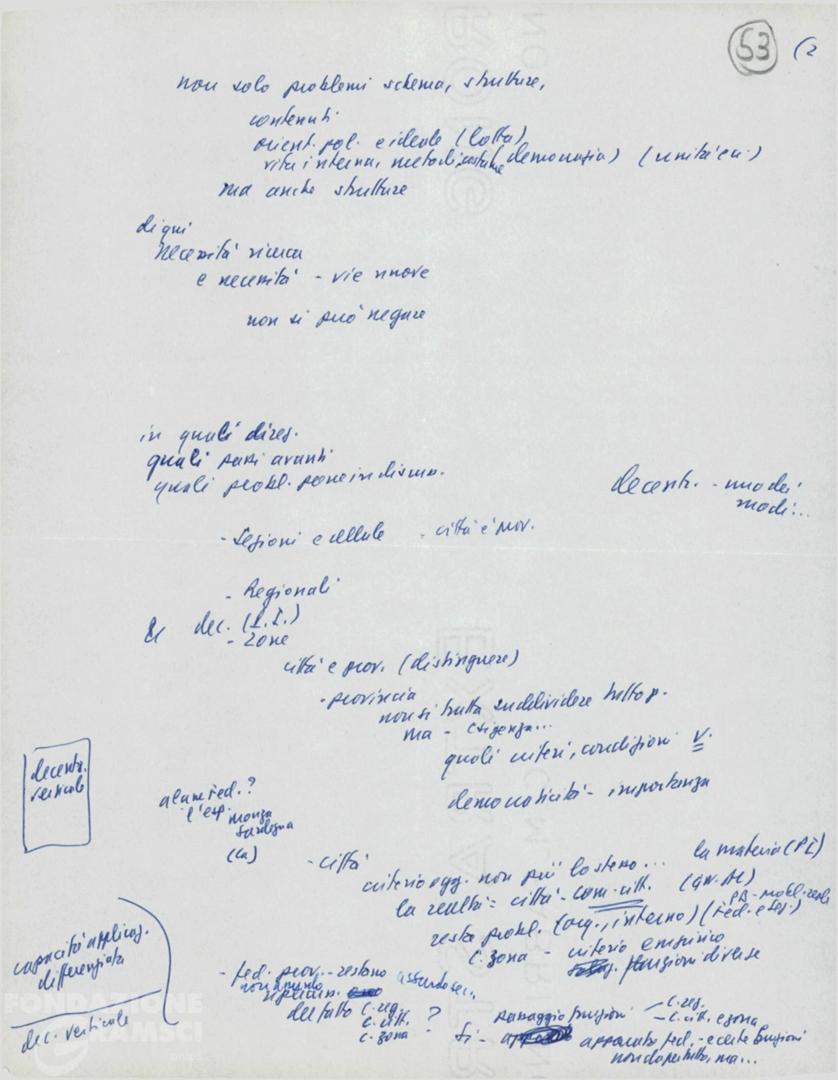 53 (2
non solo problemi schema, strutture,
contenuti
orient. pol. e ideale (lotta)
vita interna, metodi, costume, democrazia) (unità ecc.)
ma anche strutture
di qui
necessità ricerca
e necessità - vie nuove
non si può negare
in quali direz.
quali passi avanti
quali probl. porre in discuss.
decentr. - uno dei
modi...
- Sezioni e cellule - città e prov.
- Regionali
dec. (I.I.)
- zone
città e prov. (distinguere)
- provincia
non si tratta suddividere tutto p.
ma - esigenza...
quali criteri, condizioni V.
democraticità - importanza
decentr.
verticale
alcune fed.?
l'esp. monza
sardegna
(ca)
- città
criterio ogg. non più lo stesso... la materia (PI)
la realtà = città - com. citt.
resta probl. (org., interno) (fed. e seg.)
C. zona - criterio empirico
funzioni diverse
capacità applicaz.
differenziata
dec. verticale
- fed. prov. - restano
del tutto C. reg.
C. citt. ?
C. zona
passaggio funzioni - C. reg.
- C. citt. e zona
si - apparato fed. - e certe funzioni
non dappertutto, ma...
FONDAZIONE
GRAMSCI